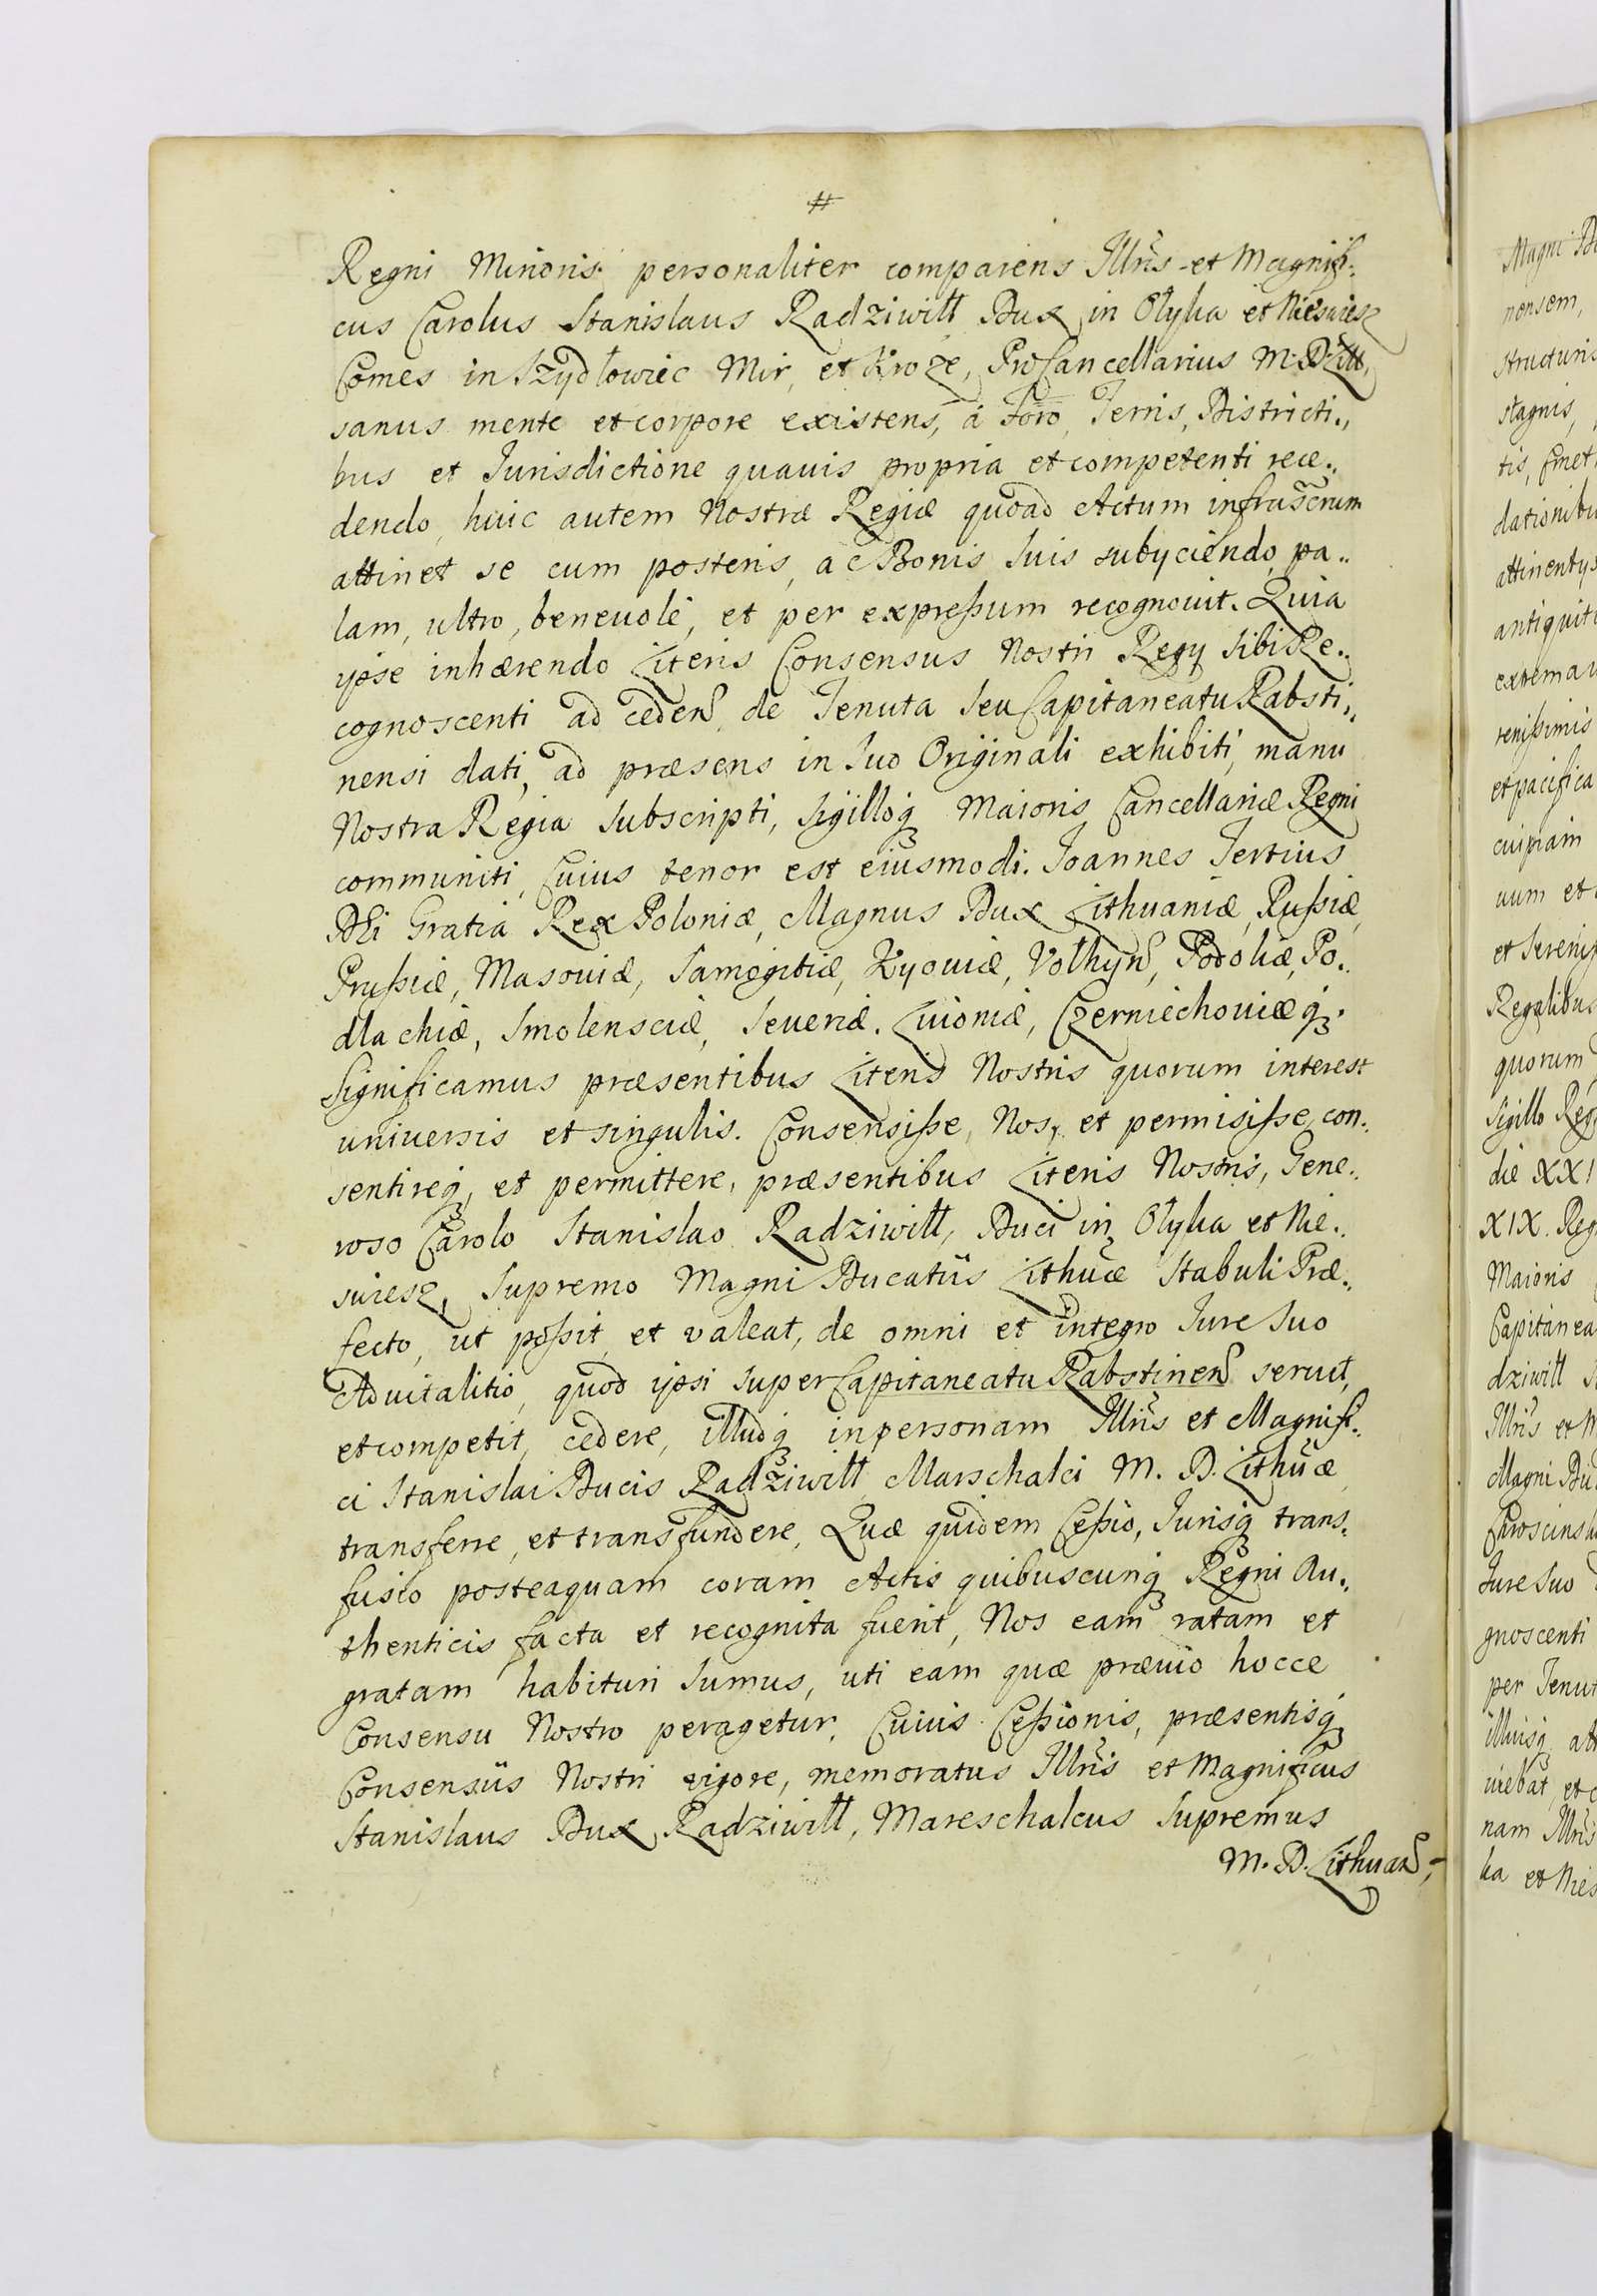 #
Regni Minoris personaliter comparens Illris et Magnifi-
cus Carolus Stanislaus Radziwiłł Dux in Olyka et Nieswiesz
Comes in Szydłowiec Mir, et Kroze, ProCancellarius M. D. Litt,
sanus mente et corpore existens, á Foro, Terris, Districti-
bus et Jurisdictione quauis propria et competenti rece-
dendo, huic autem Nostræ Regiæ quoad Actum infrascrum
attinet se cum posteris, ac Bonis Suis subyciendo, pa-
lam, ultro, beneuolé, et per expreßum recognouit. Quia
ipse inhærendo Literis Consensus Nostri Regy Sibi Re-
cognoscenti ad ceden de Tenuta Seu Capitaneatu Rabsti-
nensi dati, ad præsens in Suo Originali exhibiti, manu
Nostra Regia Subscripti, Sigilloq Maioris Cancellariæ Regni
communiti, Cuius tenor est eiusmodi. Joannes Tertius
DEi Gratia Rex Poloniæ, Magnus Dux Lithuaniæ, Rußiæ,
Prußiæ, Masouiæ, Samogitiæ, Kyouiæ, Volhyn, Podoliæ, Po-
dlachiæ, Smolensciæ, Seueriæ. Liuoniæ, Czerniechouiæq.
Significamus præsentibus Literis Nostris quorum interest
uniuersis et singulis. Consensiße, Nos, et permisiße, con-
sentireq, et permittere, præsentibus Literis Nostris, Gene-
roso Carolo Stanislao Radziwiłł, Duci in Olyka et Nie-
suiesz, Supremo Magni Ducatûs Lithuæ Stabuli Præ-
fecto, ut poßit, et valeat, de omni et integro Jure Suo
Aduitalitio, quod ipsi super Capitaneatu Rabstinen seruit,
et competit, cedere, illudq in personam Illris et Magnifi-
ci Stanislai Ducis Radziwiłł Marschalci M. D. Lithuæ
transferre, et transfundere, Quæ quidem Ceßio, Jurisq trans-
fusio posteaquam coram Actis quibuscunq Regni Au-
thenticis facta et recognita fuerit, Nos eam ratam et
gratam habituri Sumus, uti eam quæ præuio hocce
Consensu Nostro peragetur. Cuius Ceßionis, præsentisq
Consensûs Nostri vigore, memoratus Illris et Magnificus
Stanislaus Dux Radziwiłł, Mareschalcus Supremus
M. D. Lithuan,
Magni
nensem,
structuris
stagnis,
tis,
attinentys
et pacifica
cuipiam
uum et
Regalibus
quorum
Sigillo Reg
die XXI
XIX. Reg
Maioris
Capitanea
dziwiłł
Illris et M
Magni Du
Jure Suo
gnoscenti
per Tenut
illiusq att
uiebat, et c
nam Illris
ka et Nies